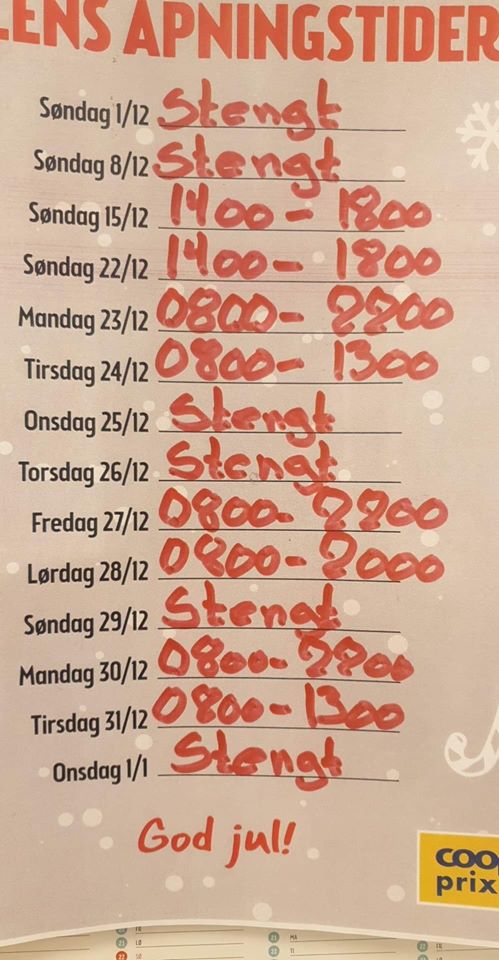 LENS ÅPNINGSTIDER
Søndag 1/12 Stengt
Søndag 8/12 Stengt
Søndag 15/12 1400 - 1800
Søndag 22/12 1400 - 1800
Mandag 23/12 0800 - 2200
Tirsdag 24/12 0800 - 1300
Onsdag 25/12 Stengt
Torsdag 26/12 Stengt
Fredag 27/12 0800 - 2200
Lørdag 28/12 0800 - 2000
Søndag 29/12 Stengt
Mandag 30/12 0800 - 2200
Tirsdag 31/12 0800 - 1300
Onsdag 1/1 Stengt
God jul!
coop
prix
21 LØ
22 SØ
21 MA